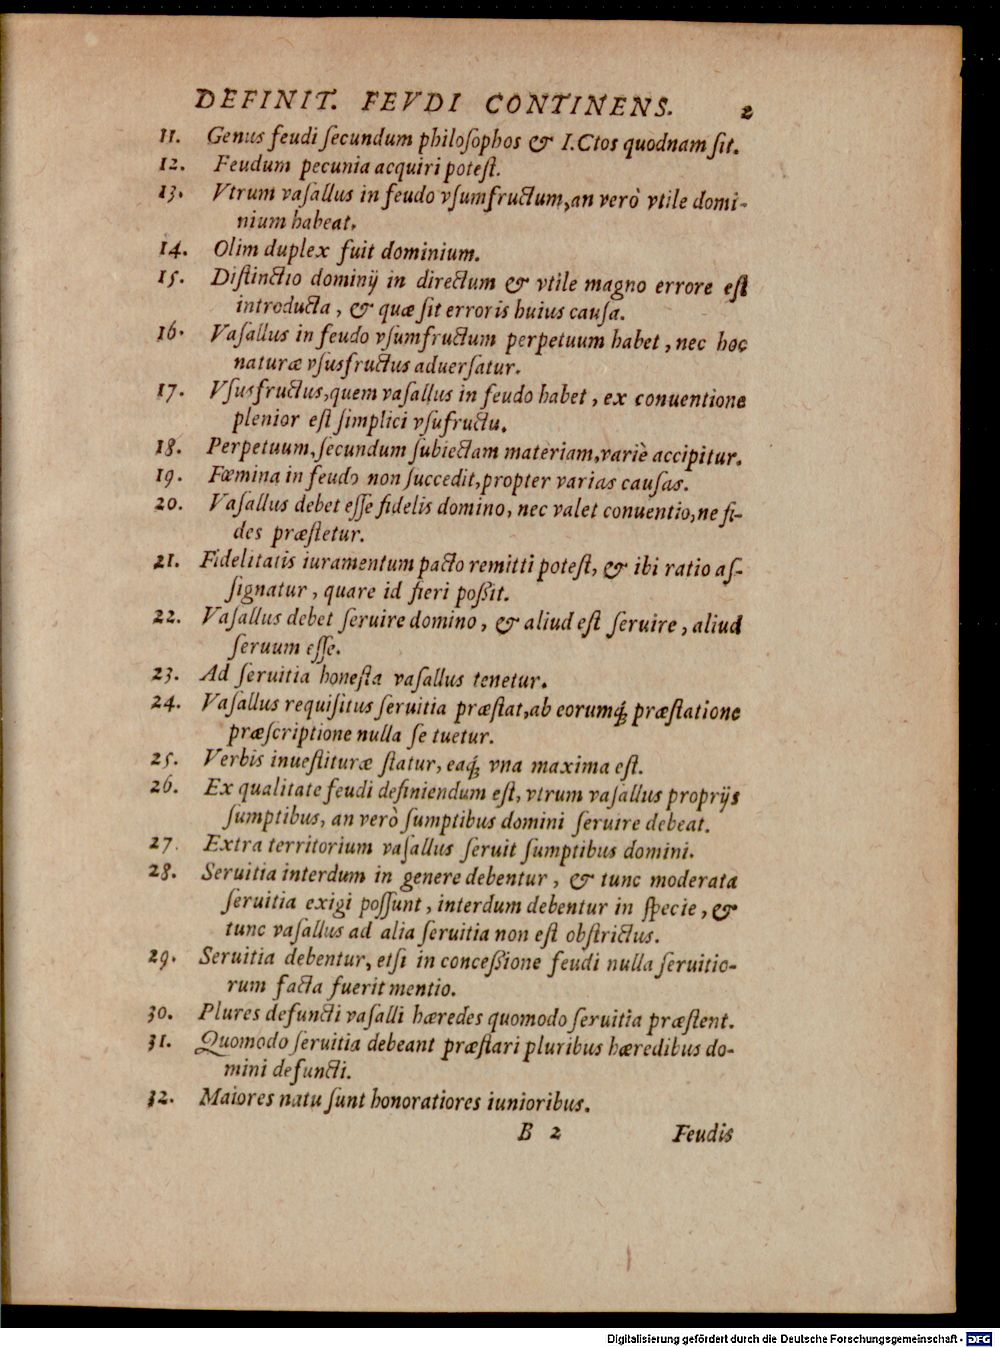 DEFINIT. FEVDI CONTINENS. 2
11. Genus feudi ſecundum philoſophos & I.Ctos quodnam ſit.
12. Feudum pecunia acquiri poteſt.
13. Vtrum vaſallus in feudo vſumfructum, an verò vtile domi-
nium habeat.
14. Olim duplex fuit dominium.
15. Diſtinctio dominij in directum & vtile magno errore eſt
introducta, & quæ ſit erroris huius cauſa.
16. Vaſallus in feudo vſumfructum perpetuum habet, nec hoc
naturæ vſusfructus aduerſatur.
17. Vſusfructus, quem vaſallus in feudo habet, ex conuentione
plenior eſt ſimplici vſufructu.
18. Perpetuum, ſecundum ſubiectam materiam, variè accipitur.
19. Fœmina in feudo non ſuccedit, propter varias cauſas.
20. Vaſallus debet eſſe fidelis domino, nec valet conuentio, ne fi-
des præſtetur.
21. Fidelitatis iuramentum pacto remitti poteſt, & ibi ratio aſ-
ſignatur, quare id fieri poßit.
22. Vaſallus debet ſeruire domino, & aliud eſt ſeruire, aliud
ſeruum eſſe.
23. Ad ſeruitia honeſta vaſallus tenetur.
24. Vaſallus requiſitus ſeruitia præſtat, ab eorumq́; præſtatione
præſcriptione nulla ſe tuetur.
25. Verbis inueſtituræ ſtatur, eaq́; vna maxima eſt.
26. Ex qualitate feudi definiendum eſt, vtrum vaſallus proprijs
ſumptibus, an verò ſumptibus domini ſeruire debeat.
27. Extra territorium vaſallus ſeruit ſumptibus domini.
28. Seruitia interdum in genere debentur, & tunc moderata
ſeruitia exigi poſſunt, interdum debentur in ſpecie, &
tunc vaſallus ad alia ſeruitia non eſt obſtrictus.
29. Seruitia debentur, etſi in conceßione feudi nulla ſeruitio-
rum facta fuerit mentio.
30. Plures defuncti vaſalli hæredes quomodo ſeruitia præſtent.
31. Quomodo ſeruitia debeant præſtari pluribus hæredibus do-
mini defuncti.
32. Maiores natu ſunt honoratiores iunioribus.
B 2 Feudis
Digitalisierung gefördert durch die Deutsche Forschungsgemeinschaft - DFG